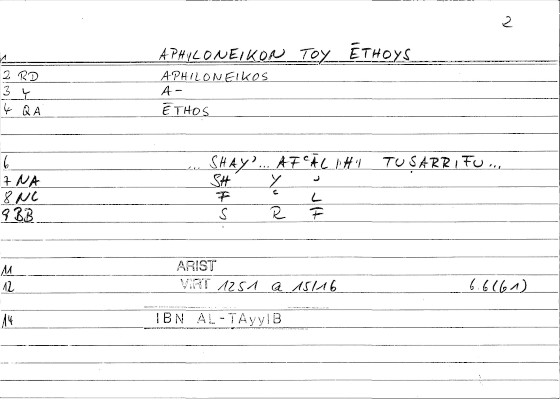 2
1 APHILONEIKON TOY ĒTHOYS
2 RD APHILONEIKOS
3 Y A-
4 QA ĒTHOS
6 ... SHAYʾ... AFʿĀL IHI TUṢARRIFU...
7 NA SH Y ʾ
8 NC F ʿ L
9 BB S R F
11 ARIST
12 VIRT 1251 a 15/16 6.6(61)
14 IBN AL-TAyyIB